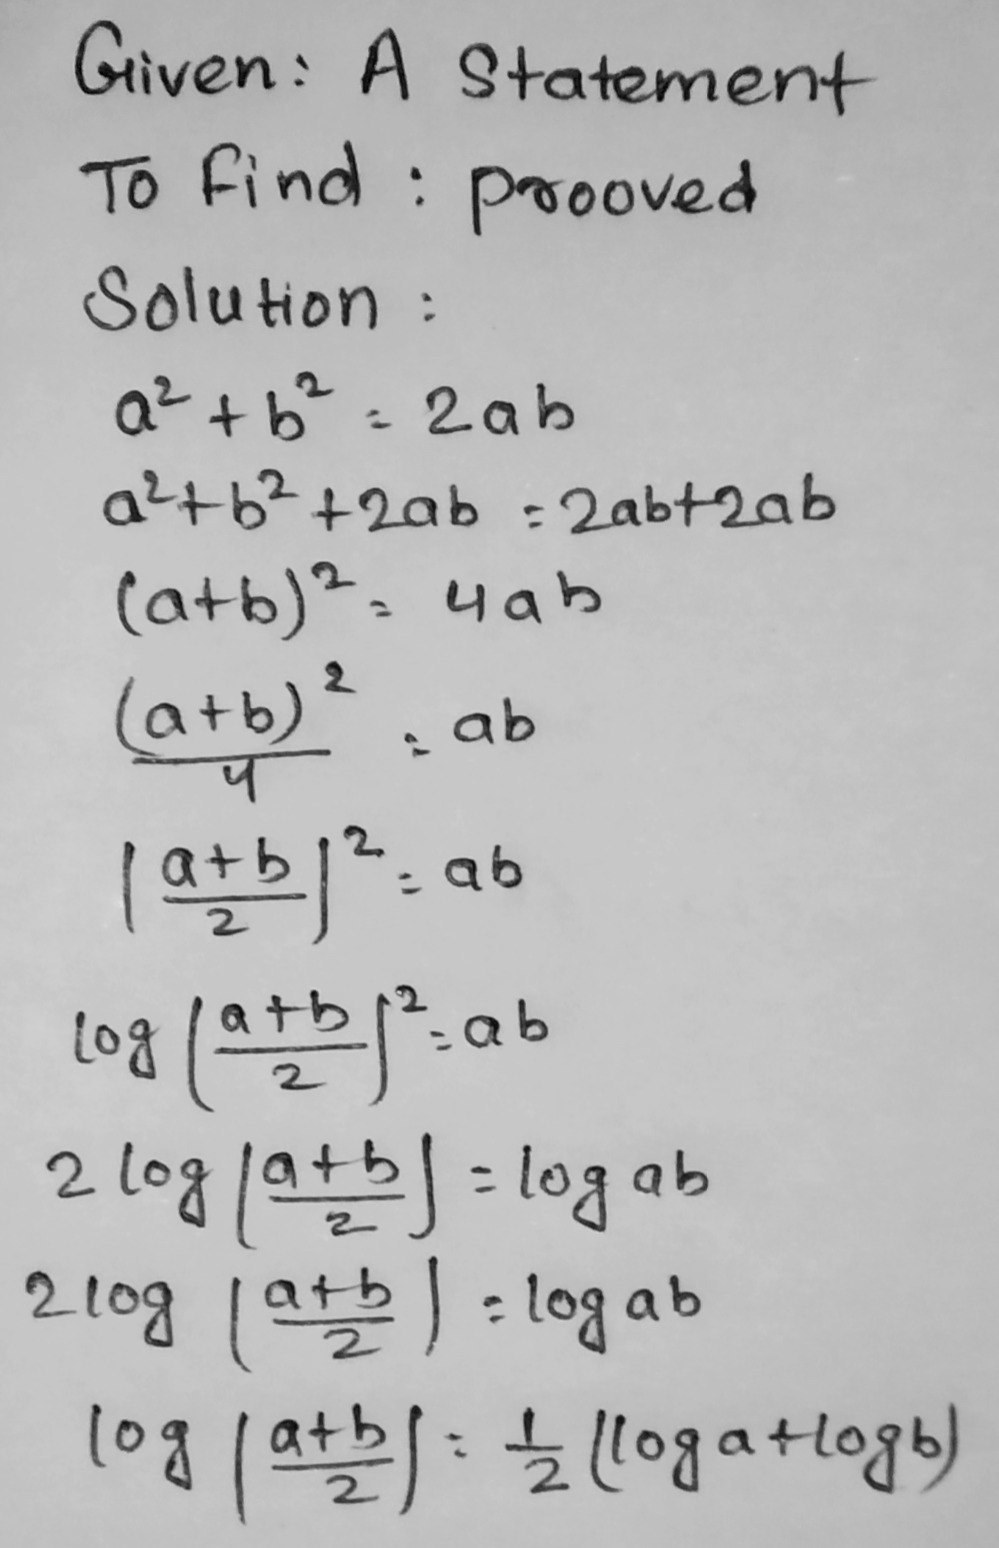 Given: A Statement
To find : proooved
Solution :
a² + b² = 2ab
a² + b² + 2ab = 2ab + 2ab
(a+b)² = 4ab
(a+b)²/4 = ab
|a+b/2|² = ab
log (a+b/2)² = ab
2 log (a+b/2) = log ab
2 log (a+b/2) = log ab
log (a+b/2) = 1/2 (log a + log b)